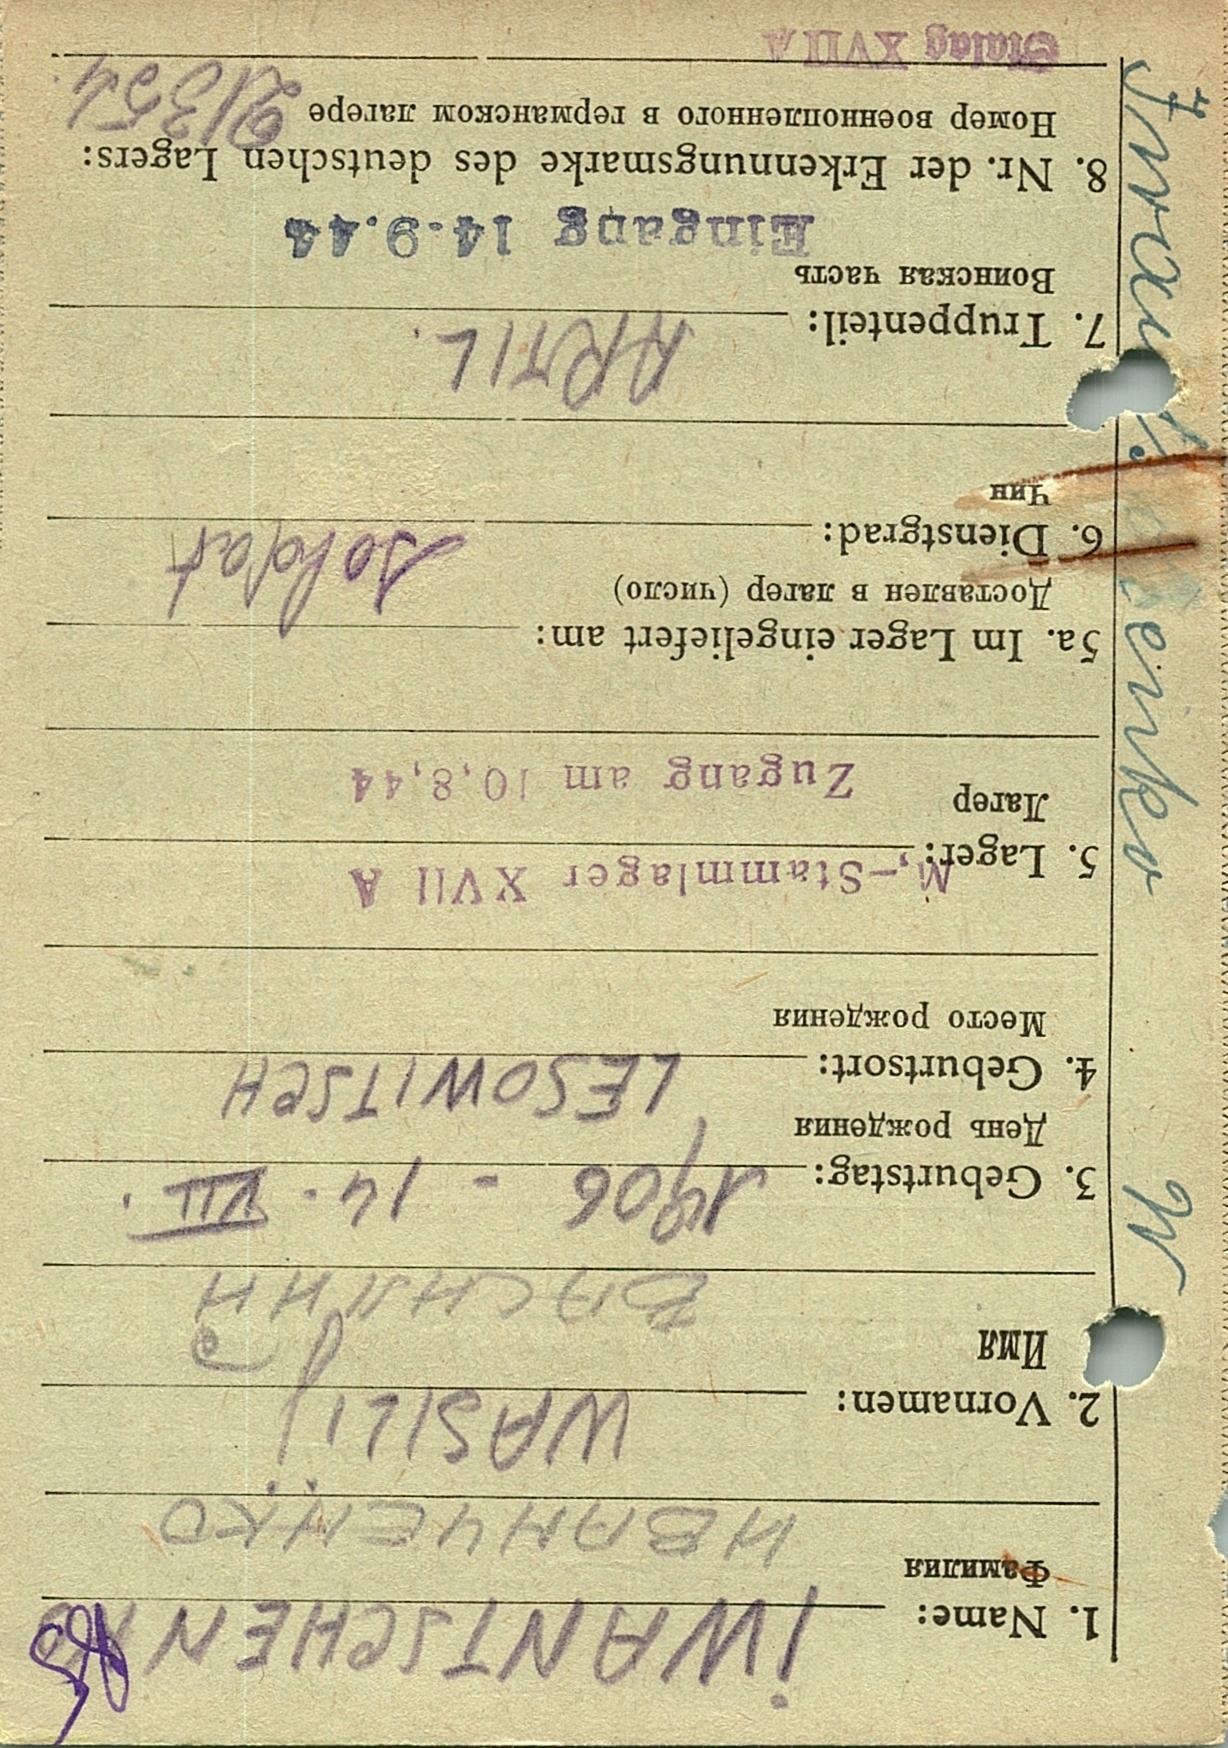 1. Name: IWANTSCHENKO
Фамилия ИВАНЧЕНКО
2. Vornamen: WASILIJ
Имя ВАСИЛИЙ
3. Geburtstag: 1906 - 14. VII.
День рождения
4. Geburtsort: LESOWITSCH
Место рождения
5. Lager: M.-Stammlager XVII A
Лагер Zugang am 10,8,44
5a. Im Lager eingeliefert am:
Доставлен в лагер (число)
6. Dienstgrad: Soldat
Чин
7. Truppenteil: ARTIL.
Воинская часть
Eingang 14.9.44
8. Nr. der Erkennungsmarke des deutschen Lagers:
Номер военнопленного в германском лагере
Stalag XVII A
W